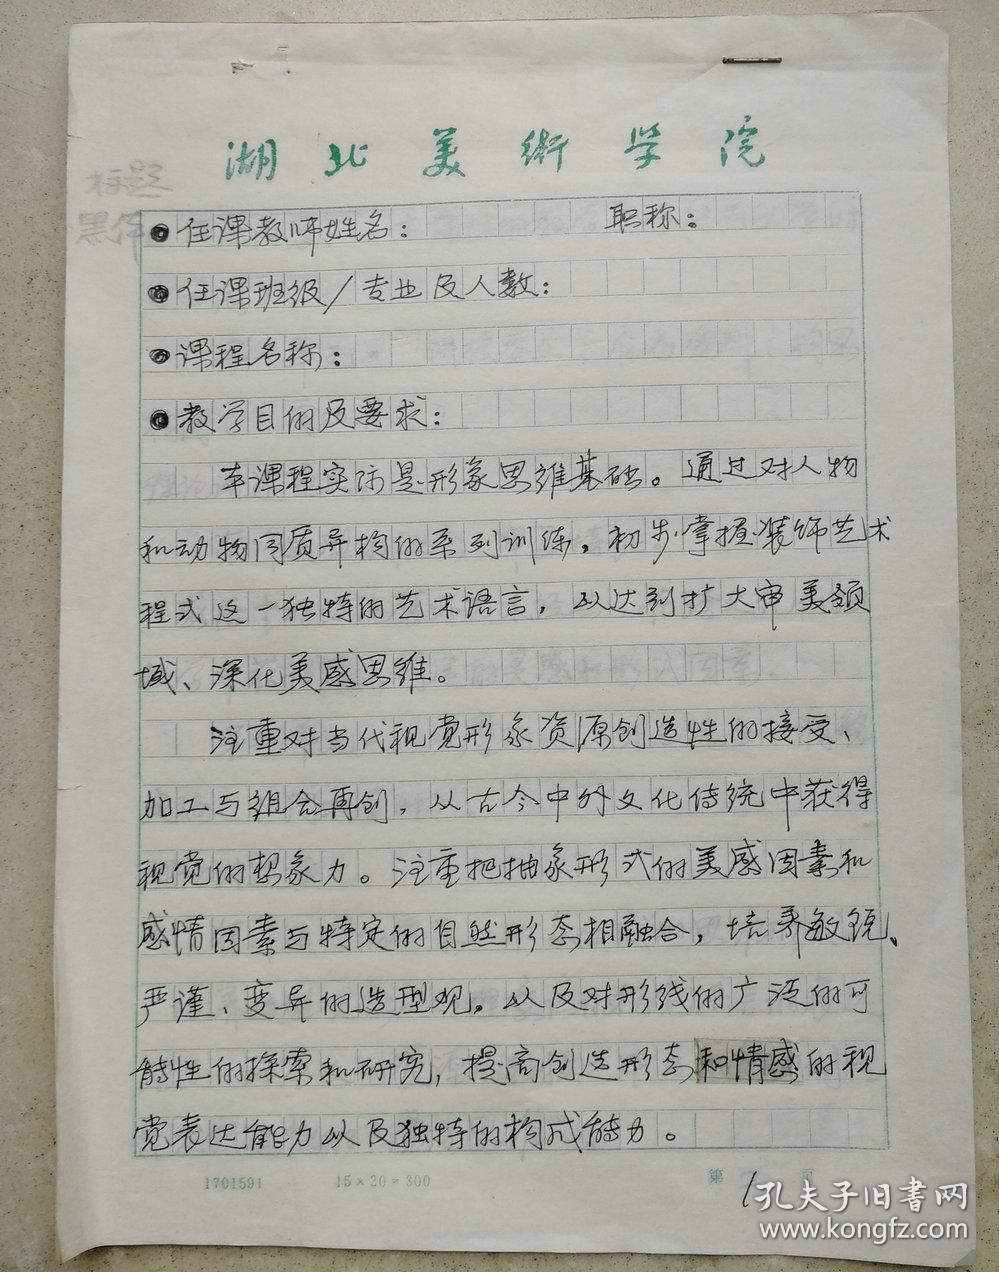 湖北美術学院
标题
黑体
●任课教师姓名： 职称：
●任课班级/专业及人数：
●课程名称：
●教学目的及要求：
本课程实际是形象思维基础。通过对人物
和动物同质异构的系列训练，初步掌握装饰艺术
程式这一独特的艺术语言，以达到扩大审美领
域、深化美感思维。
注重对当代视觉形象资源创造性的接受、
加工与组合再创，从古今中外文化传统中获得
视觉的想象力。注重把抽象形式的美感因素和
感情因素与特定的自然形态相融合，培养敏锐、
严谨、变异的造型观。以及对形线的广泛的可
能性的探索和研究，提高创造形态和情感的视
觉表达能力以及独特的构成能力。
1701591 15×20=300 第 1 页
孔夫子旧书网
www.kongfz.com